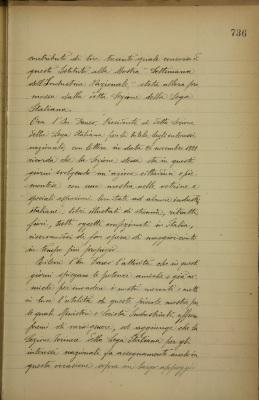 736
contributo di lire trecento quale concorso di
questo Istituto alla Mostra "Settimana
dell'Industria Nazionale" stata allora pro
mossa dalla detta Sezione della Lega
Italiana.
Ora l'On. Daneo, Presidente di detta Sezione
della Lega Italiana per la tutela degli interessi
nazionali, con lettera in data 26 novembre
ricorda che la Sezione stessa sta in questi
giorni svolgendo un'azione cittadina e pie
montese con una mostra nelle vetrine e
speciali esposizioni limitate ad alcune industrie
italiane, libri illustrati di strenna,
fiori, tutti oggetti comprimenti in Italia,
riservandosi di far opera di maggior
in tempi più propizi.
Ritiene l'On. Daneo l'attività che in questi
giorni spiegano le potenze amiche e già ne
miche per invadere i nostri mercati e mette
in luce l'utilità di queste piccole mostre per
le quali Ministri e Società Industriali
premi di vario genere, ed aggiunge che la
Sezione torinese della Lega Italiana per gli
interessi nazionali fa assegnamento anche in
questa occasione sopra un largo appoggio